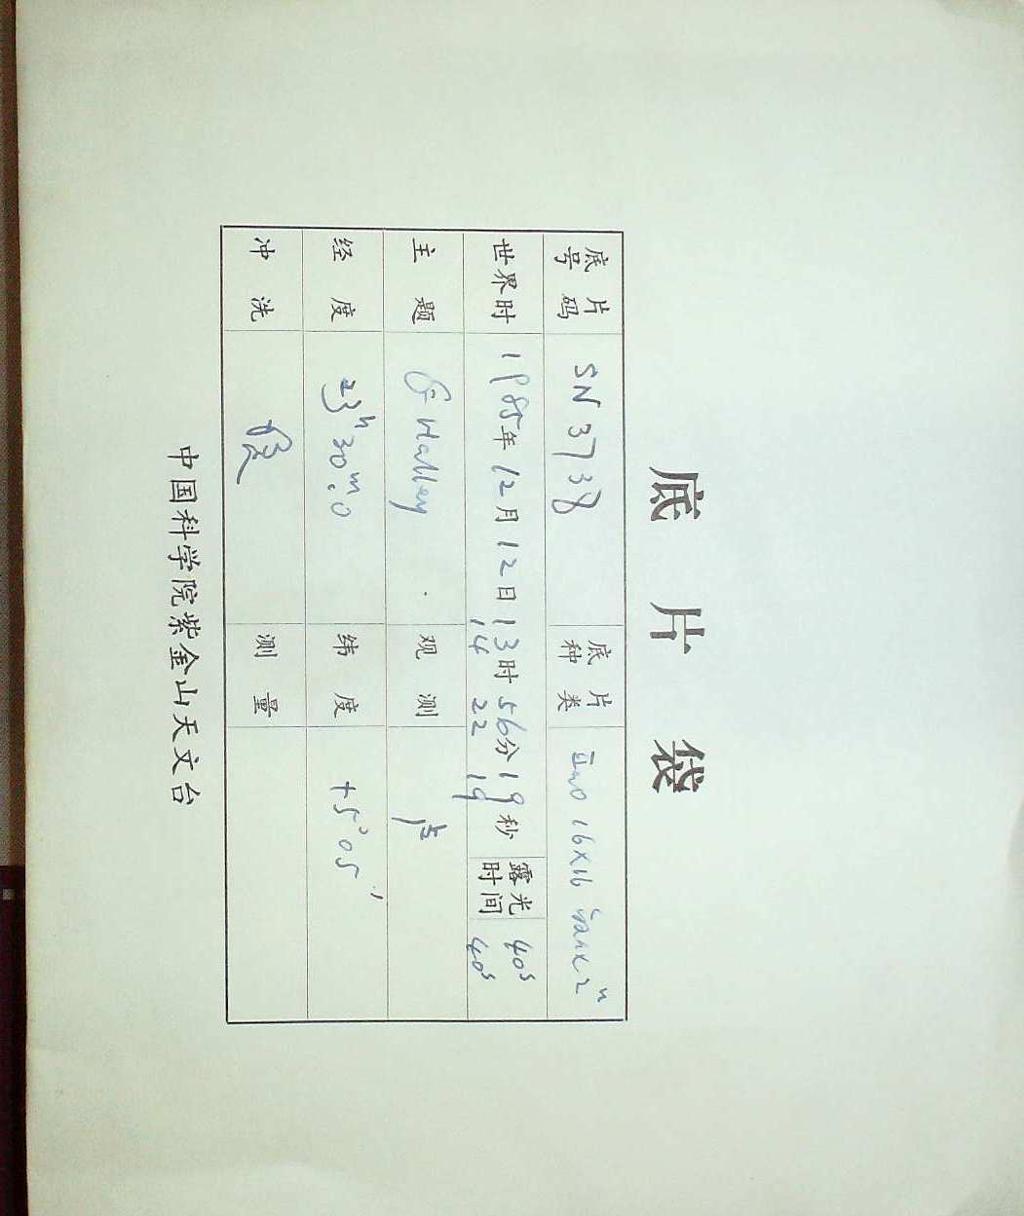 底片袋
底片号码 SN 3738 底片种类 16×16
世界时 1985年12月12日13时56分19秒 露光时间 40s
14 22 19 40s
主题 Halley 观测
经度 23h 30m.0 纬度 +5°05'
冲洗 测量
中国科学院紫金山天文台